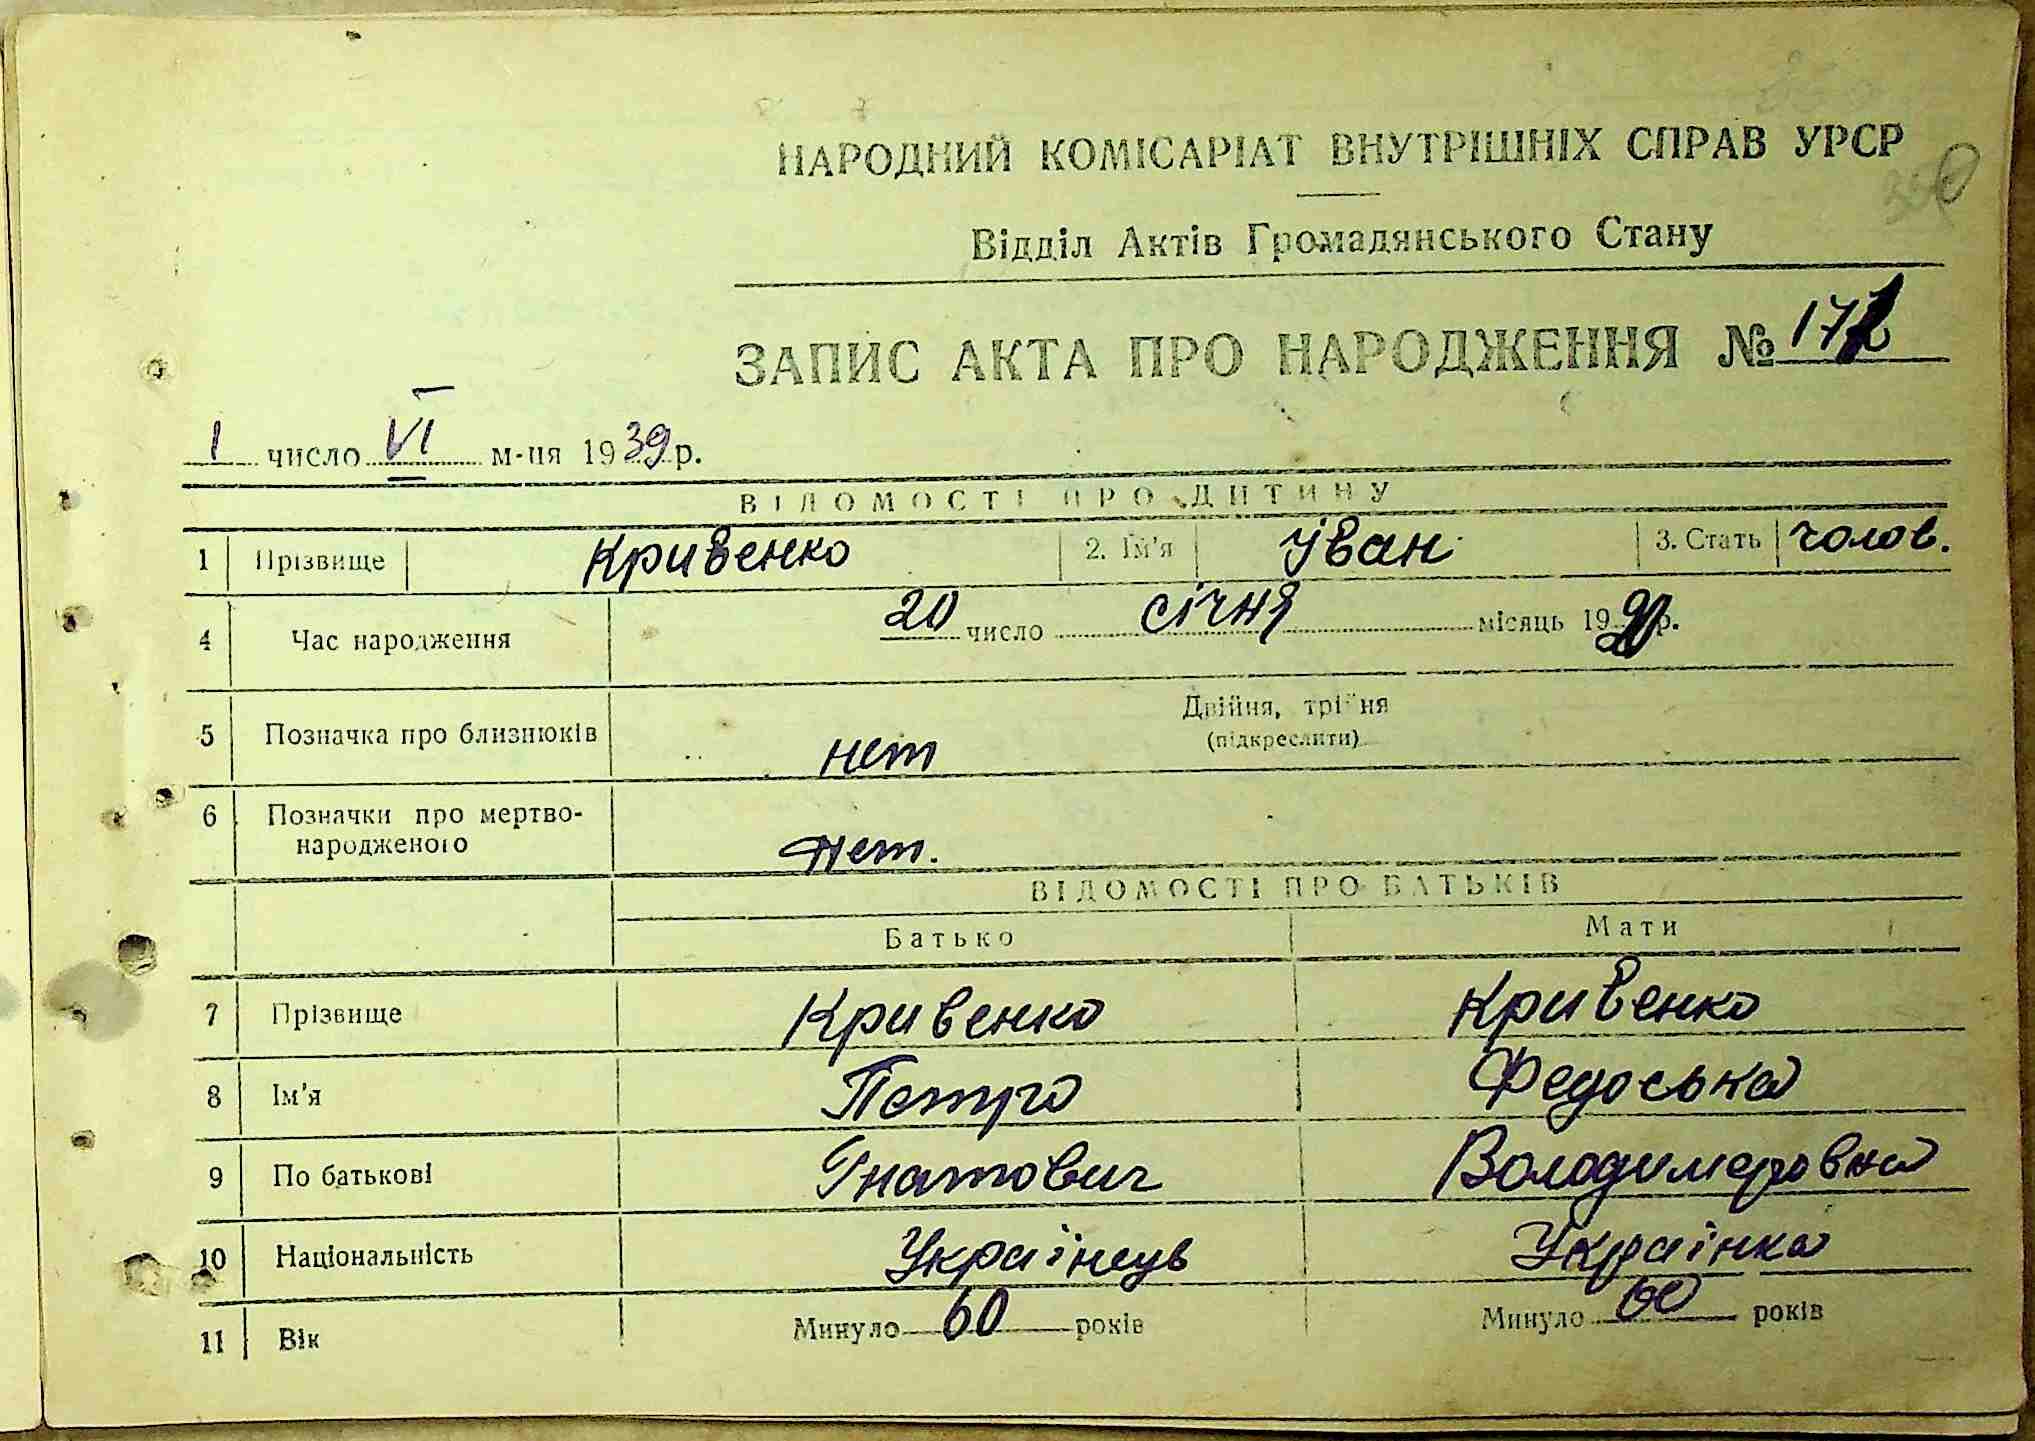 НАРОДНИЙ КОМІСАРІАТ ВНУТРІШНІХ СПРАВ УРСР
Відділ Актів Громадянського Стану
ЗАПИС АКТА ПРО НАРОДЖЕННЯ №
1 число VI м-ця 1939 р.
ВІДОМОСТІ ПРО ДИТИНУ
1 Прізвище Кривенко 2. Ім'я Іван 3. Стать чолов.
4 Час народження 20 число січня місяць 1920 р.
5 Позначка про близнюків нет Двійня, трійня (підкреслити)
6 Позначки про мертво-
народженого нет.
ВІДОМОСТІ ПРО БАТЬКІВ
Батько Мати
7 Прізвище Кривенко Кривенко
8 Ім'я Петро Федоська
9 По батькові Гнатович Володимеровна
10 Національність Українець Українка
11 Вік Минуло 60 років Минуло 60 років